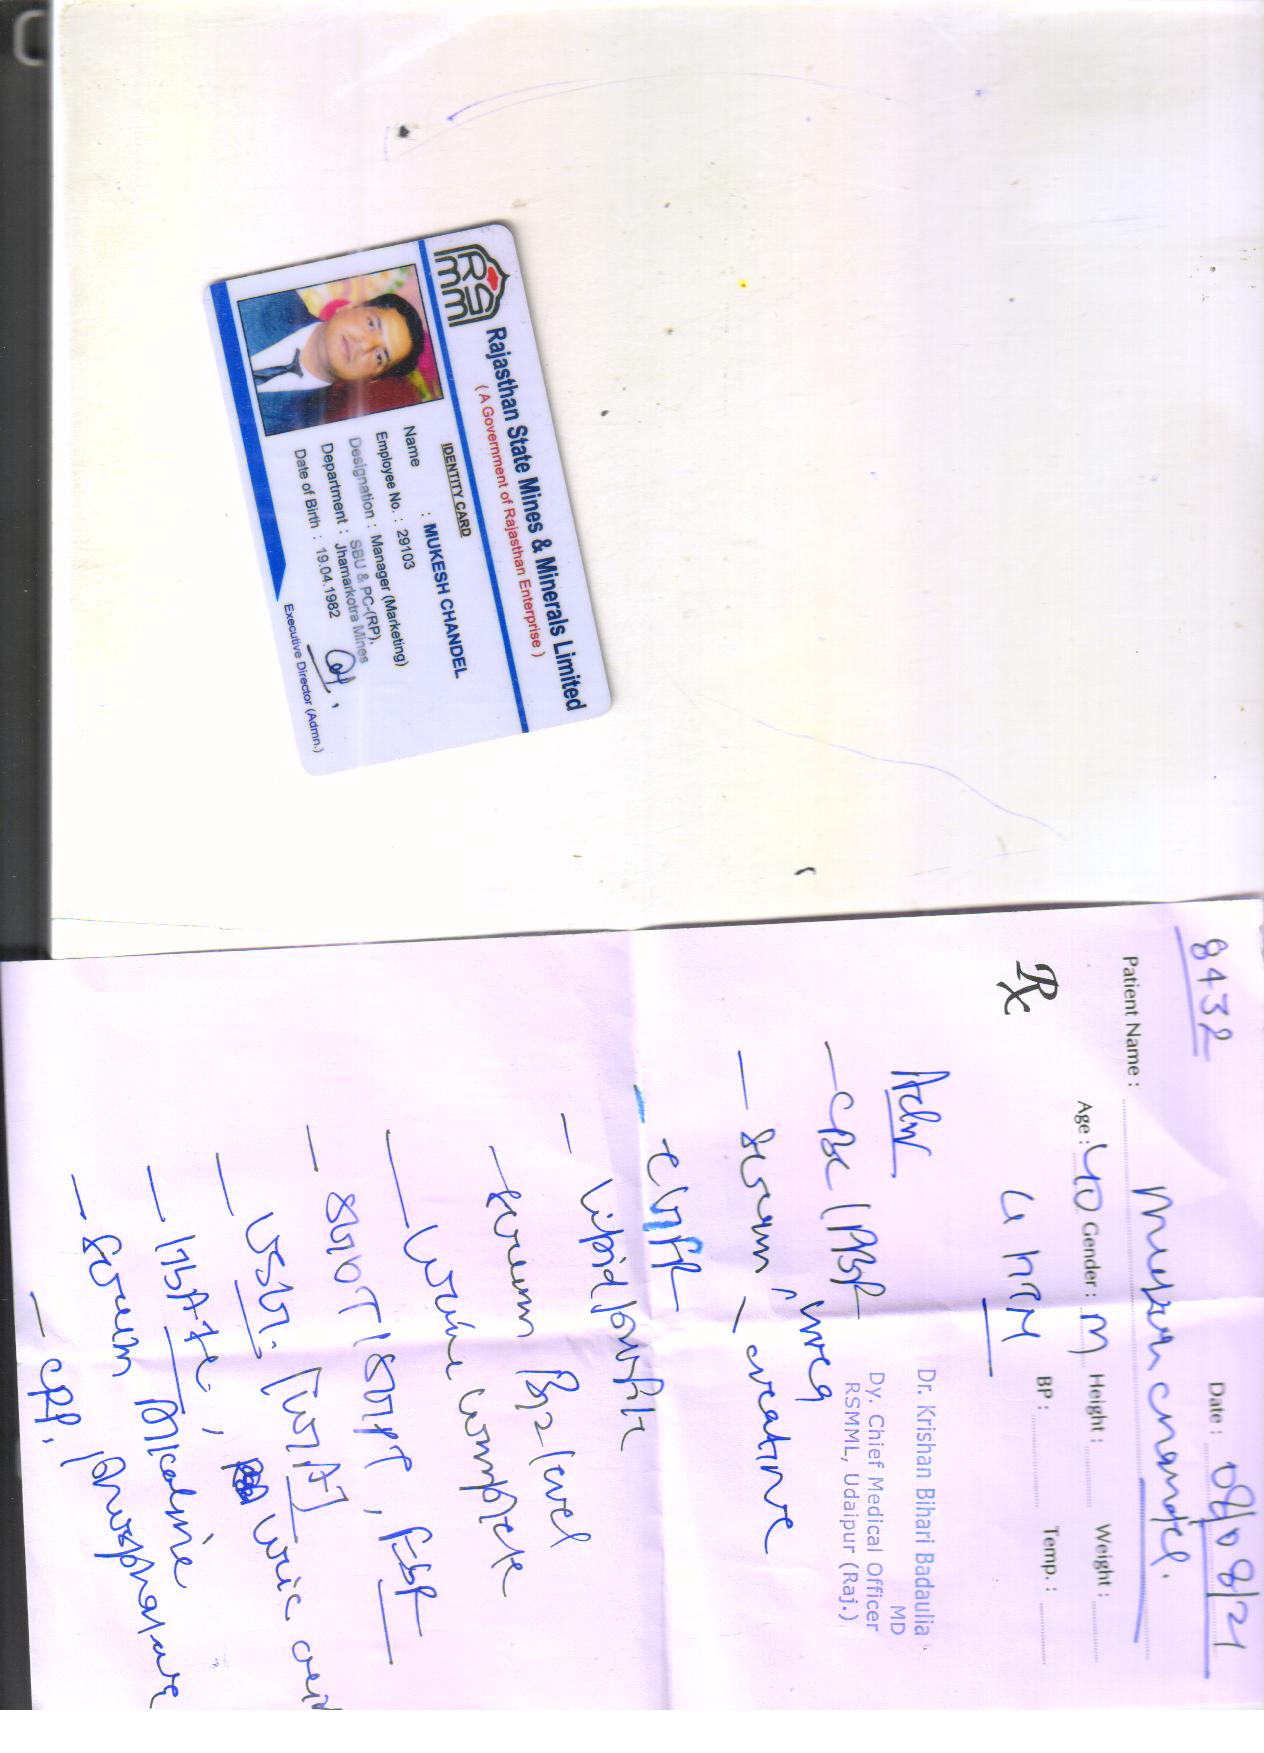 Rajasthan State Mines & Minerals Limited
( A Government of Rajasthan Enterprise )
IDENTITY CARD
Name : MUKESH CHANDEL
Employee No. : 29103
Designation : Manager (Marketing)
SBU & PC-(RP),
Department : Jhamarkotra Mines
Date of Birth : 19.04.1982
Executive Director (Admn.)
8432
Date :
Patient Name : Mukesh Chandel.
Age : 40 Gender : M Height : Weight :
BP : Temp. :
Rx
Dr. Krishan Bihari Badaulia
MD
Dy. Chief Medical Officer
RSMML, Udaipur (Raj.)
Adv
- CBC / PBF
- serum urea
creatine
- eGFR
- Lipid profile
- serum B12 level
- Urine complete
- SGOT / SGPT, FBS
- USG.
- HbA1c, uric acid
- serum Alkaline
phosphatase
- CRP.